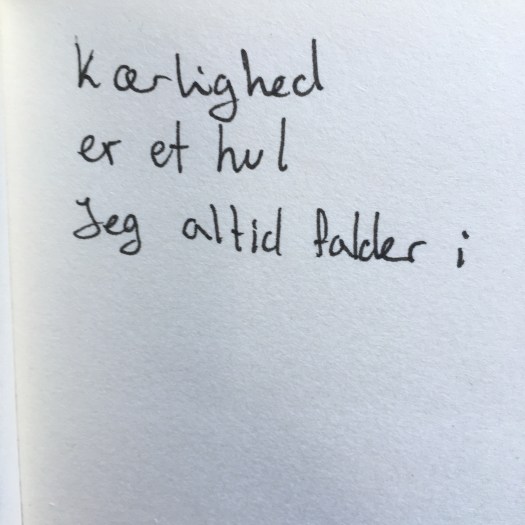 Kærlighed
er et hul
Jeg altid falder i